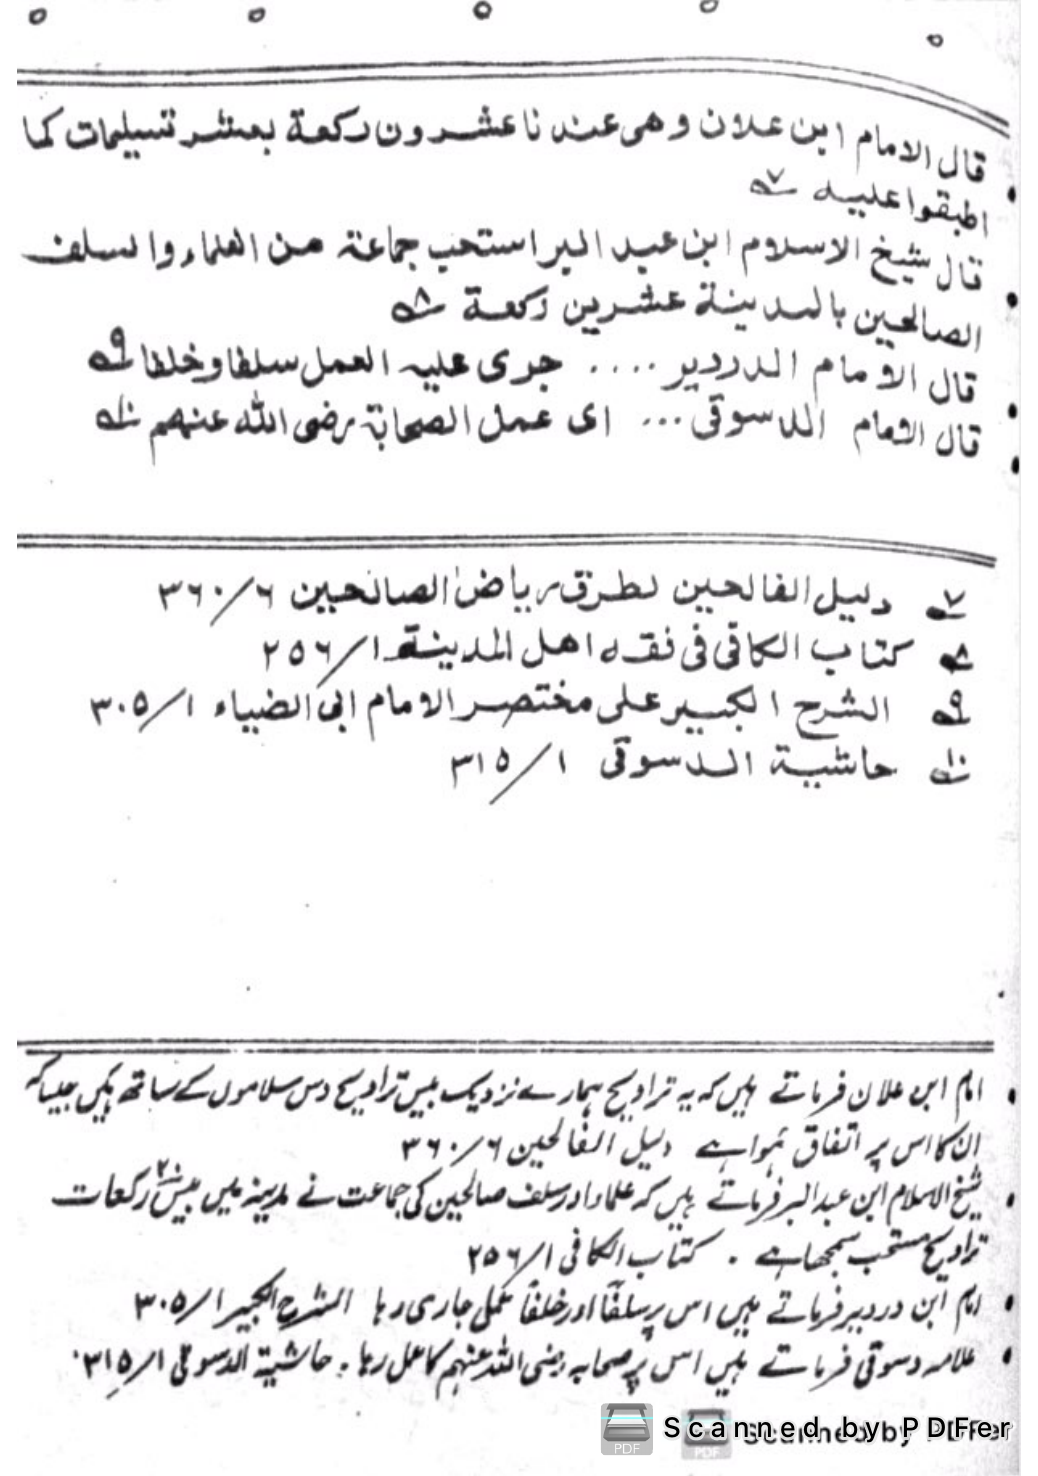 قال الامام ابن علان وهی عندنا عشرون رکعة بعشر تسلیمات کما
اطبقوا علیه ٧
قال شیخ الاسلام ابن عبد البر استحب جماعة من العلماء والسلف
الصالحین بالمدینة عشرین رکعة ٨
قال الامام الدردیر .... جری علیه العمل سلفا وخلفا ٩
قال الامام الدسوقی ... ای عمل الصحابة رضی الله عنهم ١٠
٧ دلیل الفالحین لطرق ریاض الصالحین ٦/٣٦٠
٨ کتاب الکافی فی فقه اهل المدینة ١/٢٥٦
٩ الشرح الکبیر علی مختصر الامام ابی الضیاء ١/٣٠٥
١٠ حاشیة الدسوقی ١/٣١٥
امام ابن علان فرماتے ہیں کہ یہ تراویح ہمارے نزدیک بیس تراویح دس سلاموں کے ساتھ ہیں جیسا کہ
ان کا اس پر اتفاق ہوا ہے دلیل الفالحین ٦/٣٦٠
شیخ الاسلام ابن عبد البر فرماتے ہیں کہ علماء اور سلف صالحین کی جماعت نے مدینہ میں بیس ٢٠ رکعات
تراویح مستحب سمجھا ہے ۔ کتاب الکافی ١/٢٥٦
امام ابن دردیر فرماتے ہیں اس پر سلفاً اور خلفاً عمل جاری رہا الشرح الکبیر ١/٣٠٥
علامہ دسوقی فرماتے ہیں اس پر صحابہ رضی اللہ عنہم کا عمل رہا ۔ حاشیة الدسوقی ١/٣١٥
Scanned by PDFfer
Scanned by PDFfer
PDF
PDF